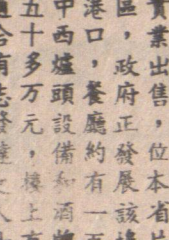 實業出售，位本省
區，政府正發展該
港口，餐廳約有一
中西爐頭設備和酒
五十多万元，樓上
合有志發